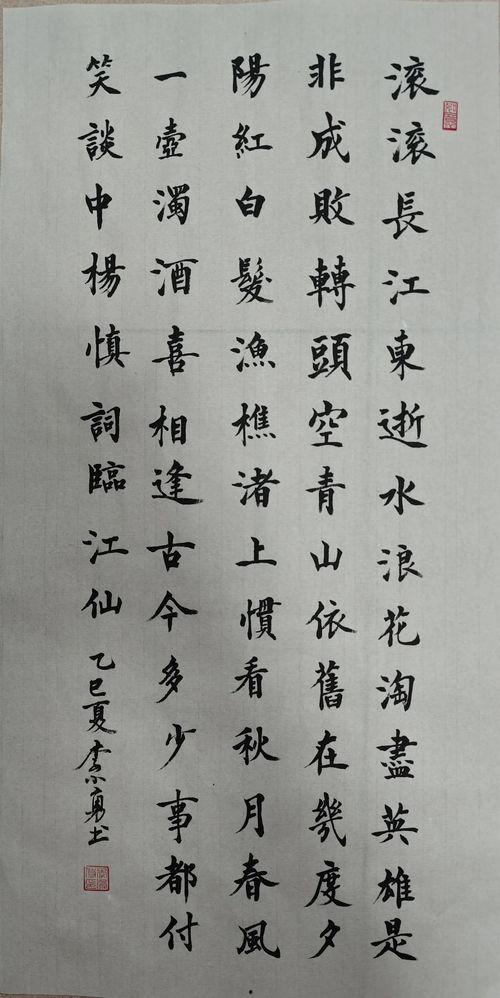 滚滚長江東逝水浪花淘盡英雄是
非成敗轉頭空青山依舊在幾度夕
陽紅白髮漁樵渚上慣看秋月春風
一壺濁酒喜相逢古今多少事都付
笑談中楊慎詞臨江仙
乙巳夏李小勇书